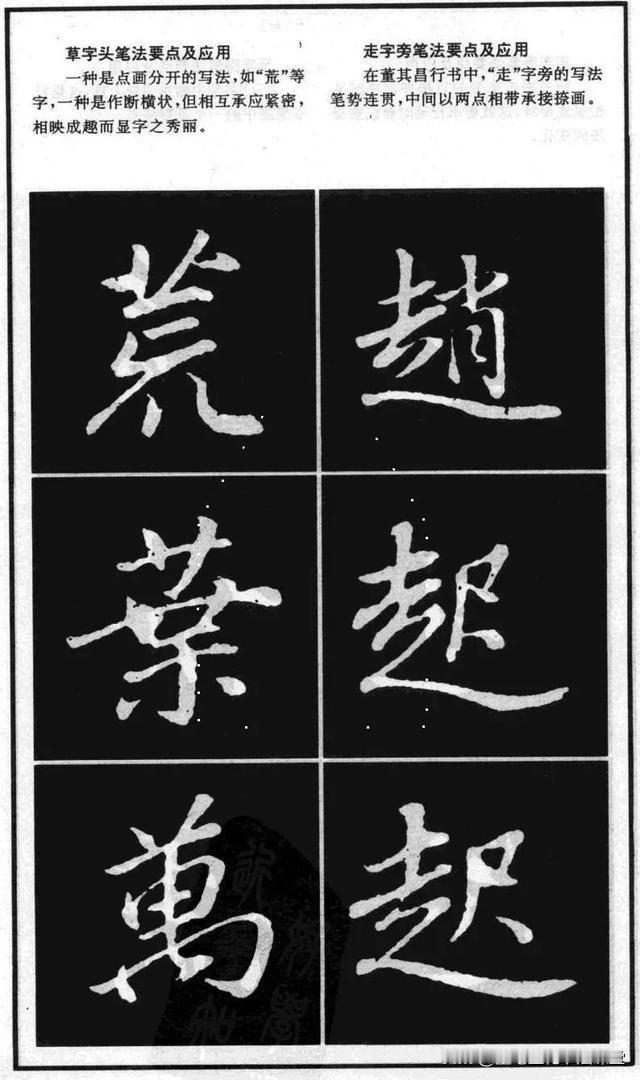 草字头笔法要点及应用
一种是点画分开的写法，如“荒”等
字，一种是作断横状，但相互承应紧密，
相映成趣而显字之秀丽。
走字旁笔法要点及应用
在董其昌行书中，“走”字旁的写法
笔势连贯，中间以两点相带承接捺画。
荒
葉
萬
趙
起
起